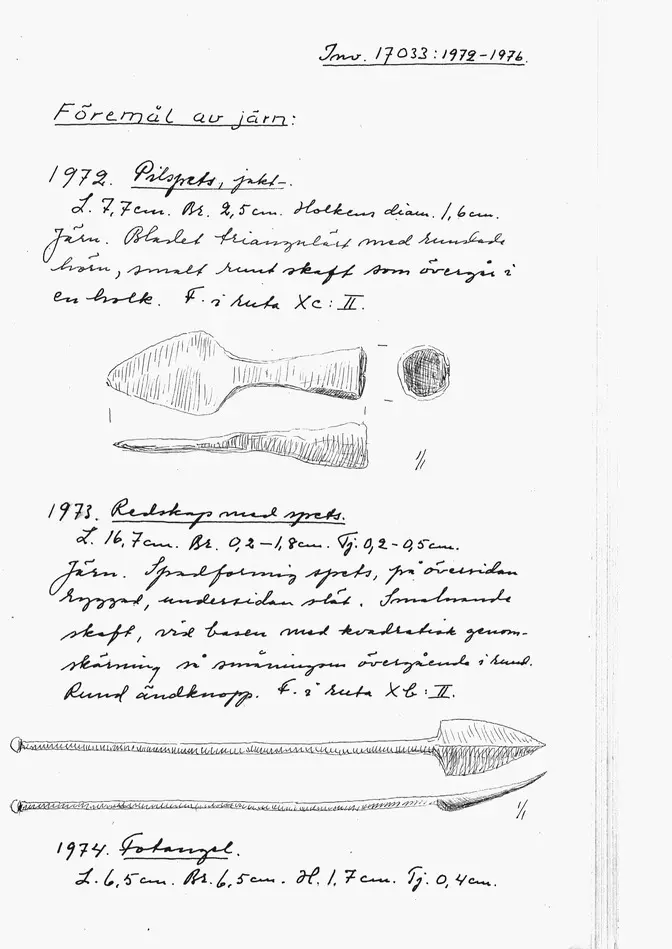 Inv. 17033:1972-1976.
Föremål av järn:
1972. Pilspets, jakt-.
L. 7,7cm. Br. 2,5cm. Holkens diam. 1,6cm.
Järn. Bladet triangulärt med rundade
hörn, smalt runt skaft som övergår i
en holk. F. i ruta Xc:II.
1/1
1973. Redskap med spets.
L. 16,7cm. Br. 0,2-1,8cm. Tj. 0,2-0,5cm.
Järn. Spadformig spets, på översidan
ryggad, undersidan slät. Smalnande
skaft, vid basen med kvadratisk genom-
skärning så småningom övergående i rund.
Rund ändknopp. F. i ruta Xb:II.
1/1
1974. Fotangel.
L. 6,5cm. Br. 6,5cm. H. 1,7cm. Tj. 0,4cm.